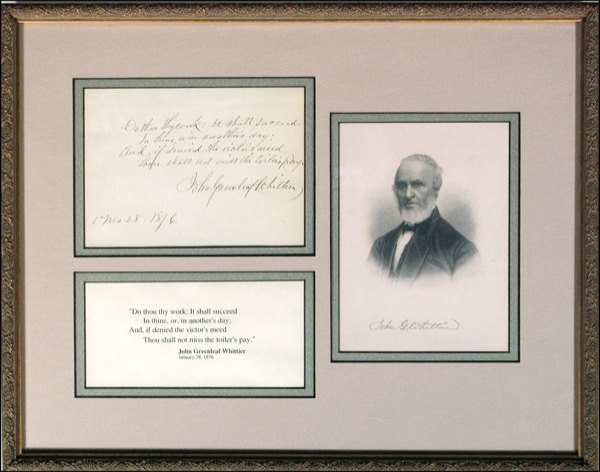 Do thou thy work: it shall succeed
In thine, or in another's day;
And, if denied the victor's meed
Thou shall not miss the toiler's pay.
John Greenleaf Whittier
28. 1876
"Do thou thy work: It shall succeed
In thine, or, in another's day;
And, if denied the victor's meed
Thou shall not miss the toiler's pay."
John Greenleaf Whittier
January 28, 1876
John G. Whittier